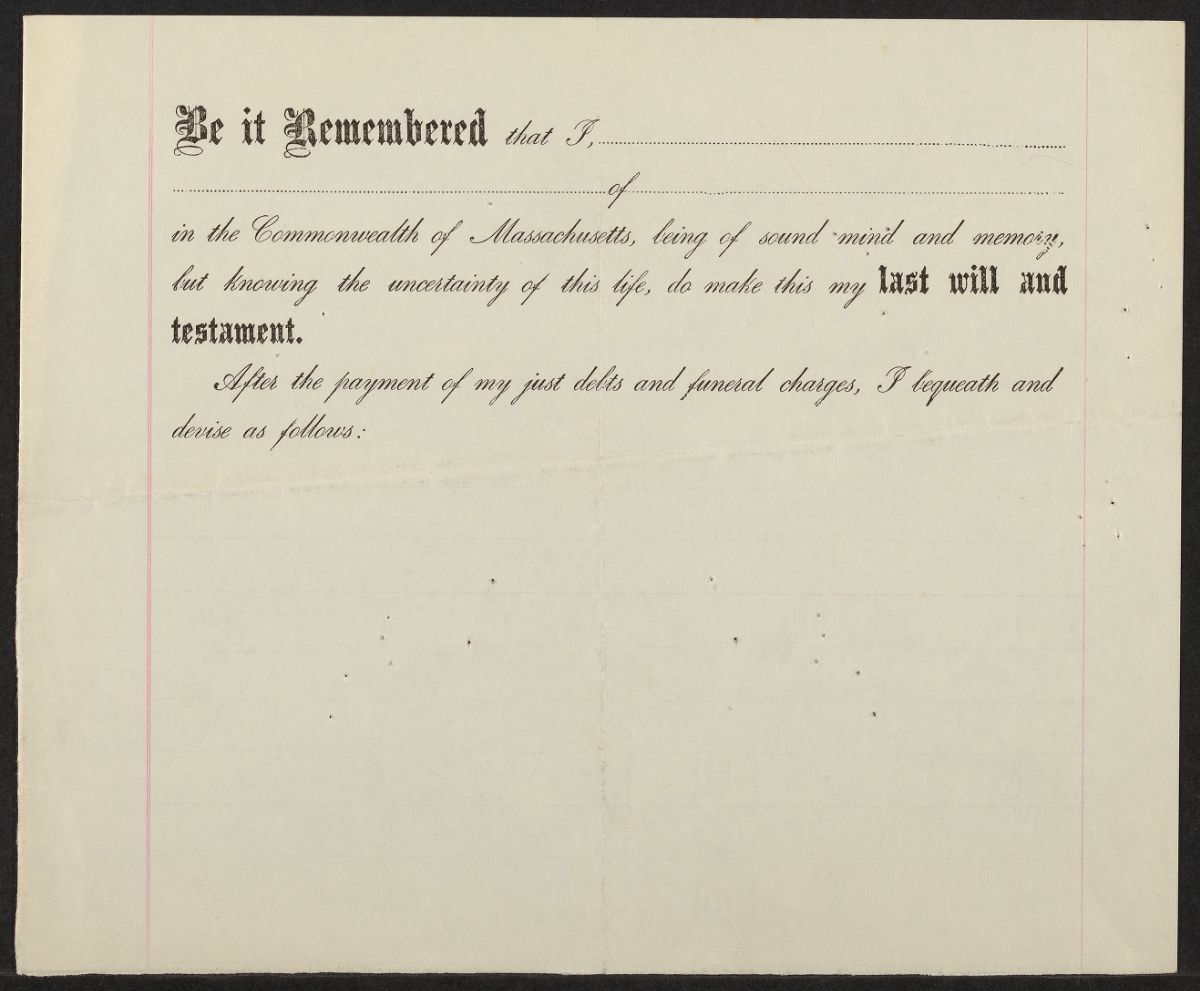 Be it Remembered that I,
of
in the Commonwealth of Massachusetts, being of sound mind and memory,
but knowing the uncertainty of this life, do make this my last will and
testament.
After the payment of my just debts and funeral charges, I bequeath and
devise as follows: